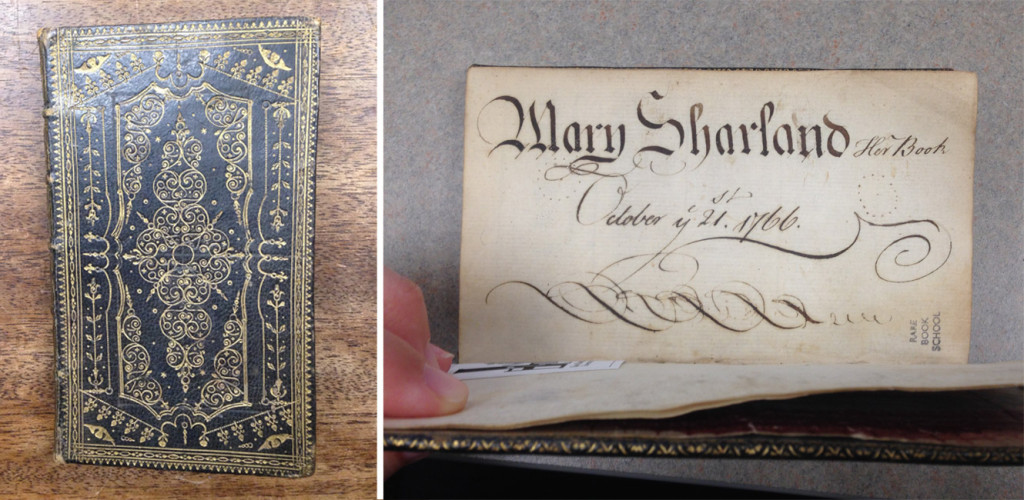 Mary Sharland Her Book
October ye 21st. 1766.
RARE
BOOK
SCHOOL